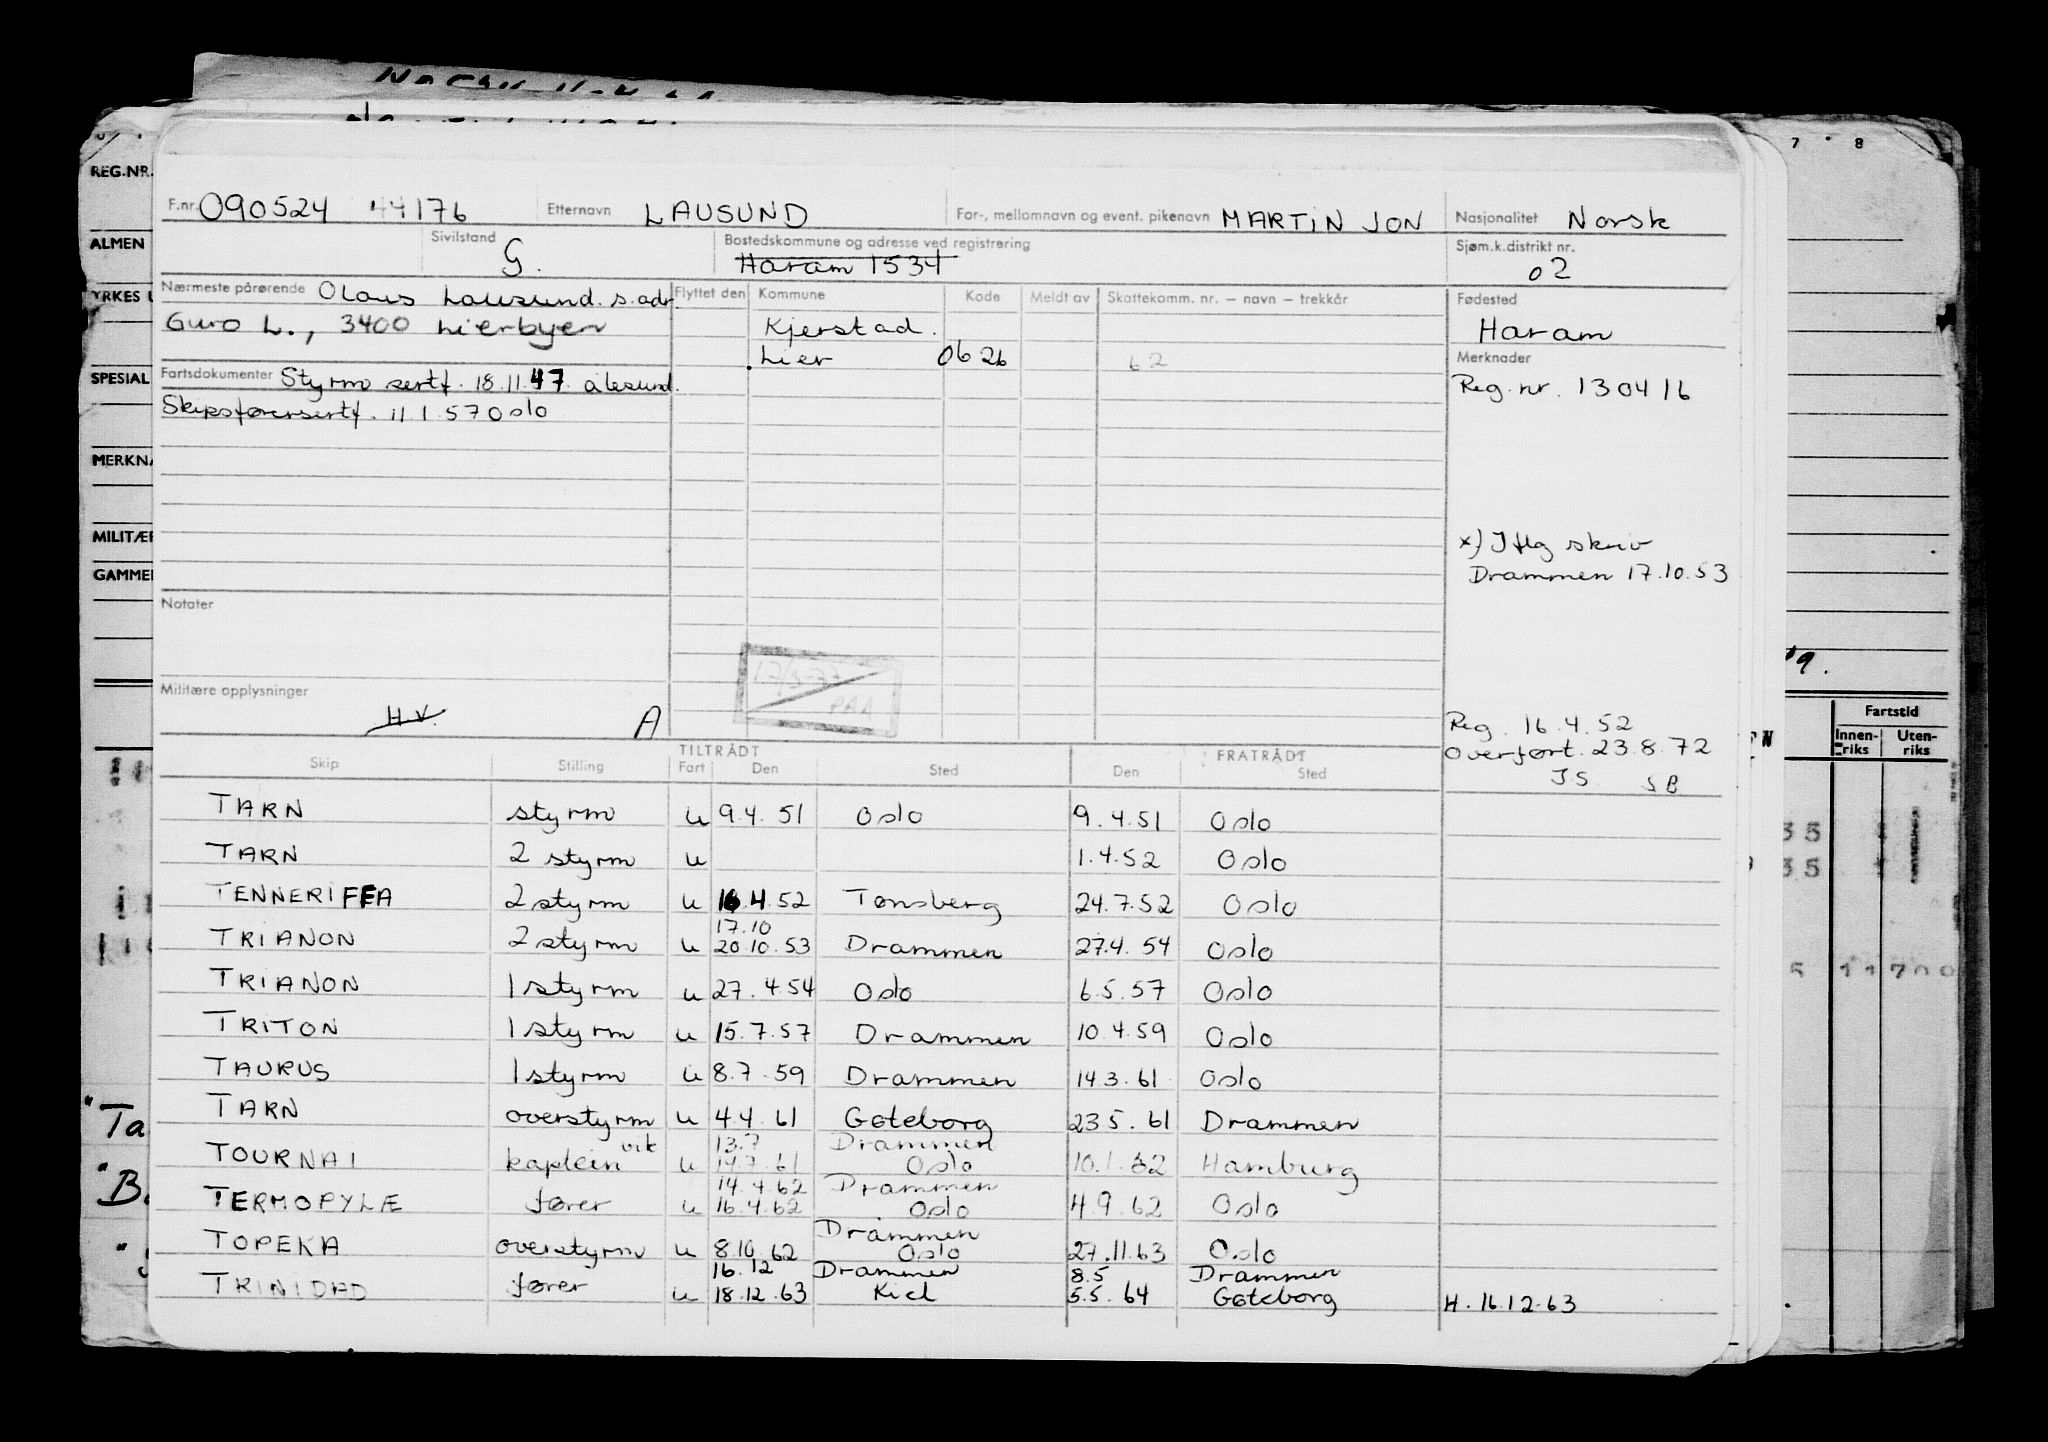 REG.NR.
ALMEN
YRKES
SPESIAL
MERKNA
MILITÆR
GAMMEL
7 8
F.nr. 090524 44176 Etternavn LAUSUND For-, mellomnavn og event. pikenavn MARTIN JON Nasjonalitet Norsk
Sivilstand G. Bostedskommune og adresse ved registrering Haram 1534 Sjøm.k.distrikt nr. 02
Nærmeste pårørende Olaus Lausund. s. adr. Flyttet den Kommune Kode Meldt av Skattekomm. nr. – navn – trekkår Fødested
Guro L., 3400 Lierbyen Kjerstad. Haram
Lier 0626 62 Merknader
Fartsdokumenter Styrm sertf. 18.11.47. ålesund. Reg. nr. 130416
Skipsførersertf. 11 1.57 Oslo
x) Iflg skriv
Drammen 17.10.53
Notater
Militære opplysninger
H.V. A
Reg. 16.4.52
Overført. 23.8.72
JS SB
Skip Stilling TILTRÅDT Fart Den Sted FRATRÅDT Den Sted
TARN styrm u 9.4.51 Oslo 9.4.51 Oslo
TARN 2 styrm u 1.4.52 Oslo
TENNERIFFA 2 styrm u 16.4.52 Tønsberg 24.7.52 Oslo
17.10
TRIANON 2 styrm u 20.10.53 Drammen 27.4.54 Oslo
TRIANON 1 styrm u 27.4.54 Oslo 6.5.57 Oslo
TRITON 1 styrm u 15.7.57 Drammen 10.4.59 Oslo
TAURUS 1 styrm u 8.7.59 Drammen 14.3.61 Oslo
TARN overstyrm u 4.4.61 Gøteborg 23 5.61 Drammen
vik 13.7 Drammen
TOURNAI kaptein u 14.7.61 Oslo 10.1.62 Hamburg
14.4.62 Drammen
TERMOPYLÆ fører u 16.4.62 Oslo 4.9.62 Oslo
Drammen
TOPEKA overstyrm u 8.10.62 Oslo 27.11.63 Oslo
16.12 Drammen 8.5 Drammen
TRINIDAD fører u 18.12.63 Kiel 5.5.64 Gøteborg H. 16.12.63
Fartstid
Innen-riks Uten-riks
35
35
5 11700
"Ta
"B